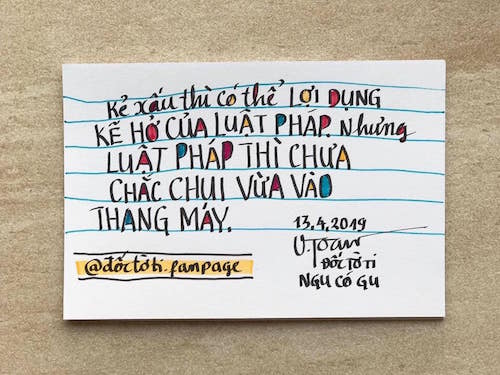 Kẻ xấu thì có thể LỢI DỤNG
KẼ HỞ CỦA LUẬT PHÁP. Nhưng
LUẬT PHÁP THÌ CHƯA
CHẮC CHUI VỪA VÀO
THANG MÁY.
13.4.2019
V.Toan
ĐỐC TỜ TI
NGU CÓ GU
@đốctờti.fanpage